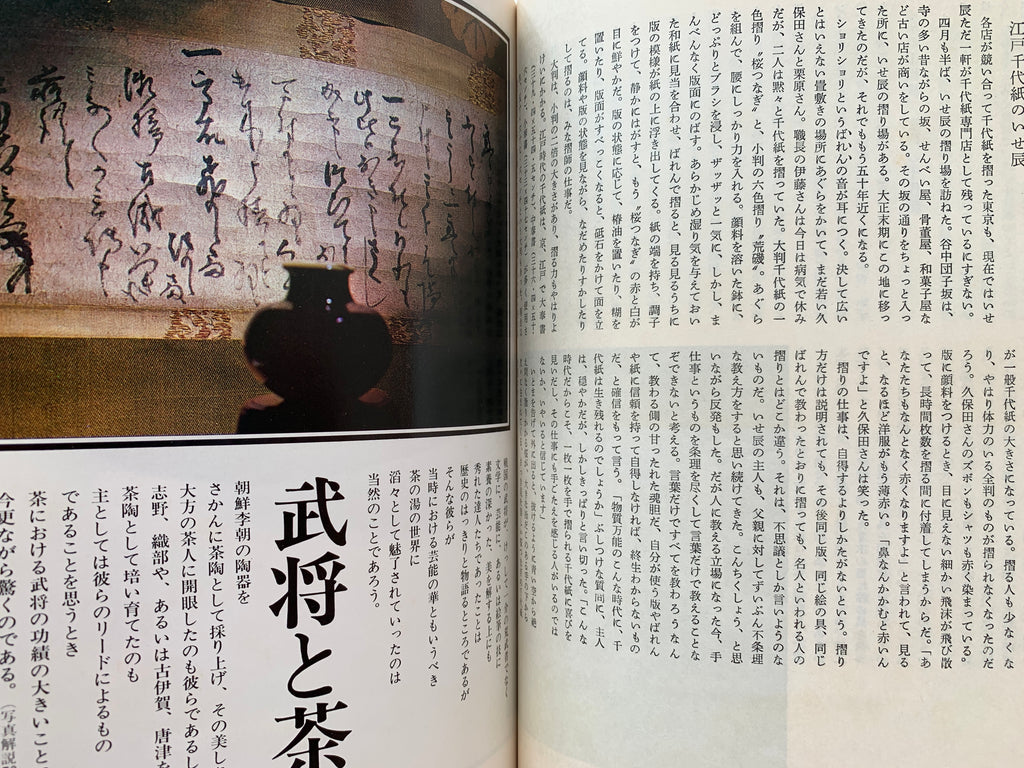 江戸千代紙のいせ辰
各店が競い合って千代紙を摺った東京も、現在ではいせ
辰ただ一軒が千代紙専門店として残っているにすぎない。
四月も半ば、いせ辰の摺り場を訪ねた。谷中団子坂は、
寺の多い昔ながらの坂、せんべい屋、骨董屋、和菓子屋な
ど古い店が商いをしている。その坂の通りをちょっと入っ
た所に、いせ辰の摺り場がある。大正末期にこの地に移っ
てきたのだが、それでももう五十年近くになる。
ショリショリというばれんの音が耳につく。決して広い
とはいえない畳敷きの場所にあぐらをかいて、まだ若い久
保田さんと栗原さん。職長の伊藤さんは今日は病気で休み
だが、二人は黙々と千代紙を摺っていた。大判千代紙の一
色摺り〝桜つなぎ〟と、小判の六色摺り〝荒磯〟。あぐら
を組んで、腰にしっかり力を入れる。顔料を溶いた鉢に、
どっぷりとブラシを浸し、ザッザッと一気に、しかし、ま
んべんなく版面にのばす。あらかじめ湿り気を与えておい
た和紙に見当を合わせ、ばれんで摺ると、見る見るうちに
版の模様が紙の上に浮き出してくる。紙の端を持ち、調子
をつけて、静かにはがすと、もう〝桜つなぎ〟の赤と白が
目に鮮やかだ。版の状態に応じて、椿油を置いたり、糊を
置いたり、版面がすべっこくなると、砥石をかけて面を立
てる。顔料や版の状態を見ながら、なだめたりすかしたり
して摺るのは、みな摺師の仕事だ。
大判は、小判の二倍の大きさがあり、摺る力もやはりよ
けいにかかる。江戸時代の千代紙は、京、江戸で大奉書
が一般千代紙の大きさになっている。摺る人も少なくな
り、やはり体力のいる全判のものが摺られなくなったのだ
ろう。久保田さんのズボンもシャツも赤く染まっている。
版に顔料をつけるとき、目に見えない細かい飛沫が飛び散
って、長時間枚数を摺る間に付着してしまうからだ。「あ
なたたちもなんとなく赤くなりますよ」と言われて、見る
と、なるほど洋服がもう薄赤い。「鼻なんかかむと赤いん
ですよ」と久保田さんは笑った。
摺りの仕事は、自得するよりしかたがないという。摺り
方だけは説明されても、その後同じ版、同じ絵の具、同じ
ばれんで教わったとおりに摺っても、名人といわれる人の
摺りとはどこか違う。それは、不思議としか言いようのな
いものだ。いせ辰の主人も、父親に対してずいぶん不条理
な教え方をすると思い続けてきた。こんちくしょう、と思
いながら反発もした。だが人に教える立場になった今、手
仕事というものを条理を尽くして言葉だけで教えることな
ぞできないと考える。言葉だけですべてを教わろうなん
て、教わる側の甘ったれた魂胆だ、自分が使う版やばれん
や紙に信頼を持って自得しなければ、終生わからないもの
だ、と確信をもって言う。「物質万能のこんな時代に、千
代紙は生き残れるのでしょうか」ぶしつけな質問に、主人
は、穏やかだが、しかしきっぱりと言い切った。「こんな
時代だからこそ、一枚一枚を手で摺られる千代紙に喜びを
見いだし、その仕事にも手ごたえを感じる人がいるのでは
ないか、いやいると信じています」
武将と茶
文学に、芸能に、あるいは絵筆の技に
素養の深かった、美を解する上にも
秀れた達人たちであったことは
歴史のはっきりと物語るところであるが
そんな彼らが
当時における芸能の華ともいうべき
茶の湯の世界に
滔々として魅了されていったのは
当然のことであろう。
朝鮮李朝の陶器を
さかんに茶陶として採り上げ、その美し
大方の茶人に開眼したのも彼らであるし
志野、織部や、あるいは古伊賀、唐津を
茶陶として培い育てたのも
主としては彼らのリードによるもの
であることを思うとき
茶における武将の功績の大きいこと
今更ながら驚くのである。(写真解説